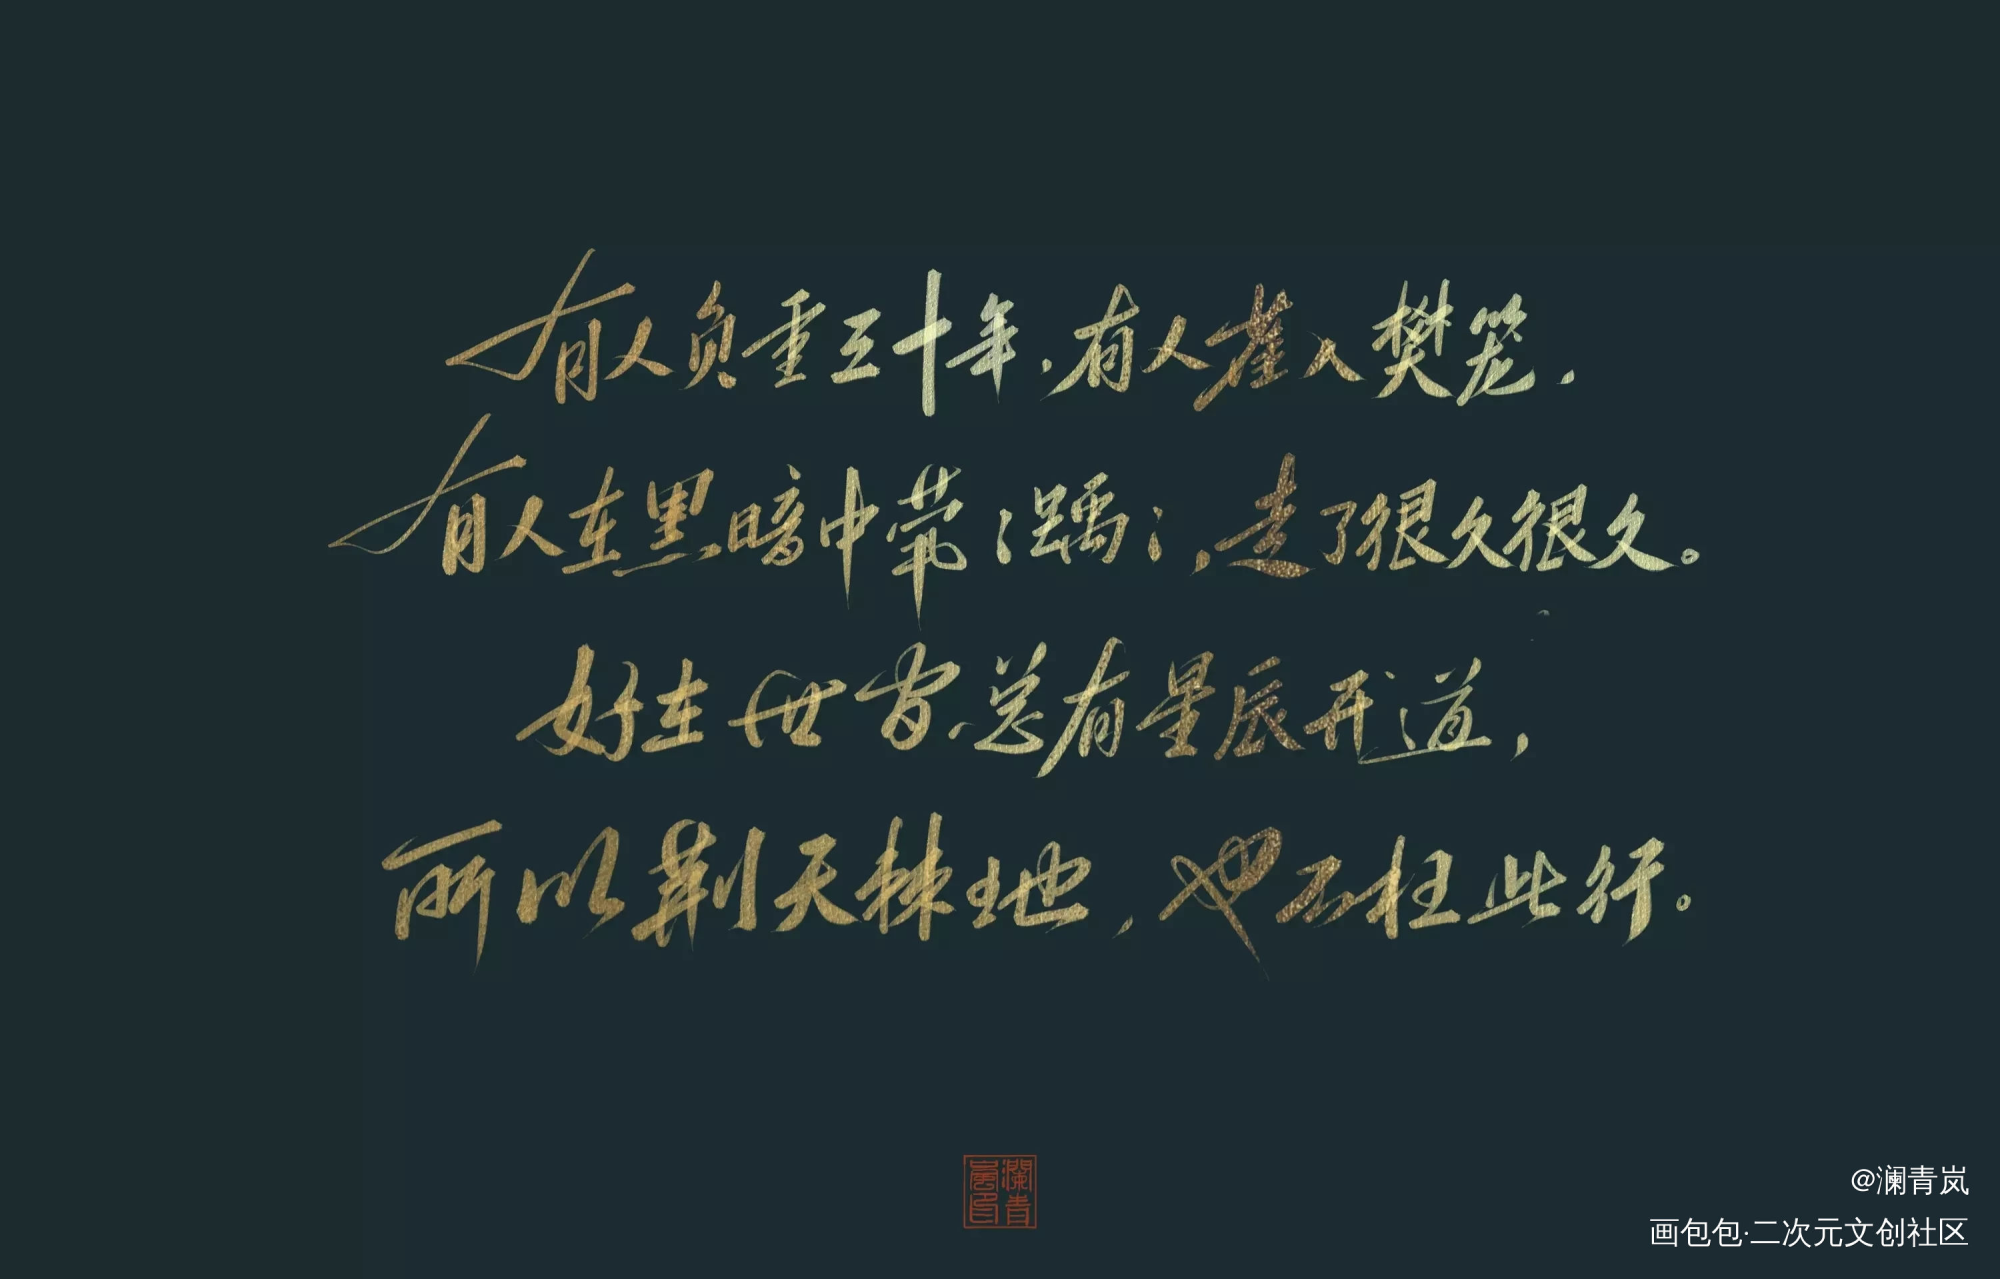 有人负重三十年，有人摧入樊笼，
有人在黑暗中茕茕踽踽，走了很久很久。
好在世间总有星辰开道，
所以荆天棘地，也不枉此行。
澜青岚印
@澜青岚
画包包·二次元文创社区